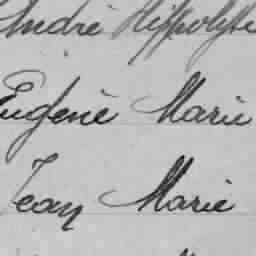 André Hippolyte
Eugène Marie
Jean Marie